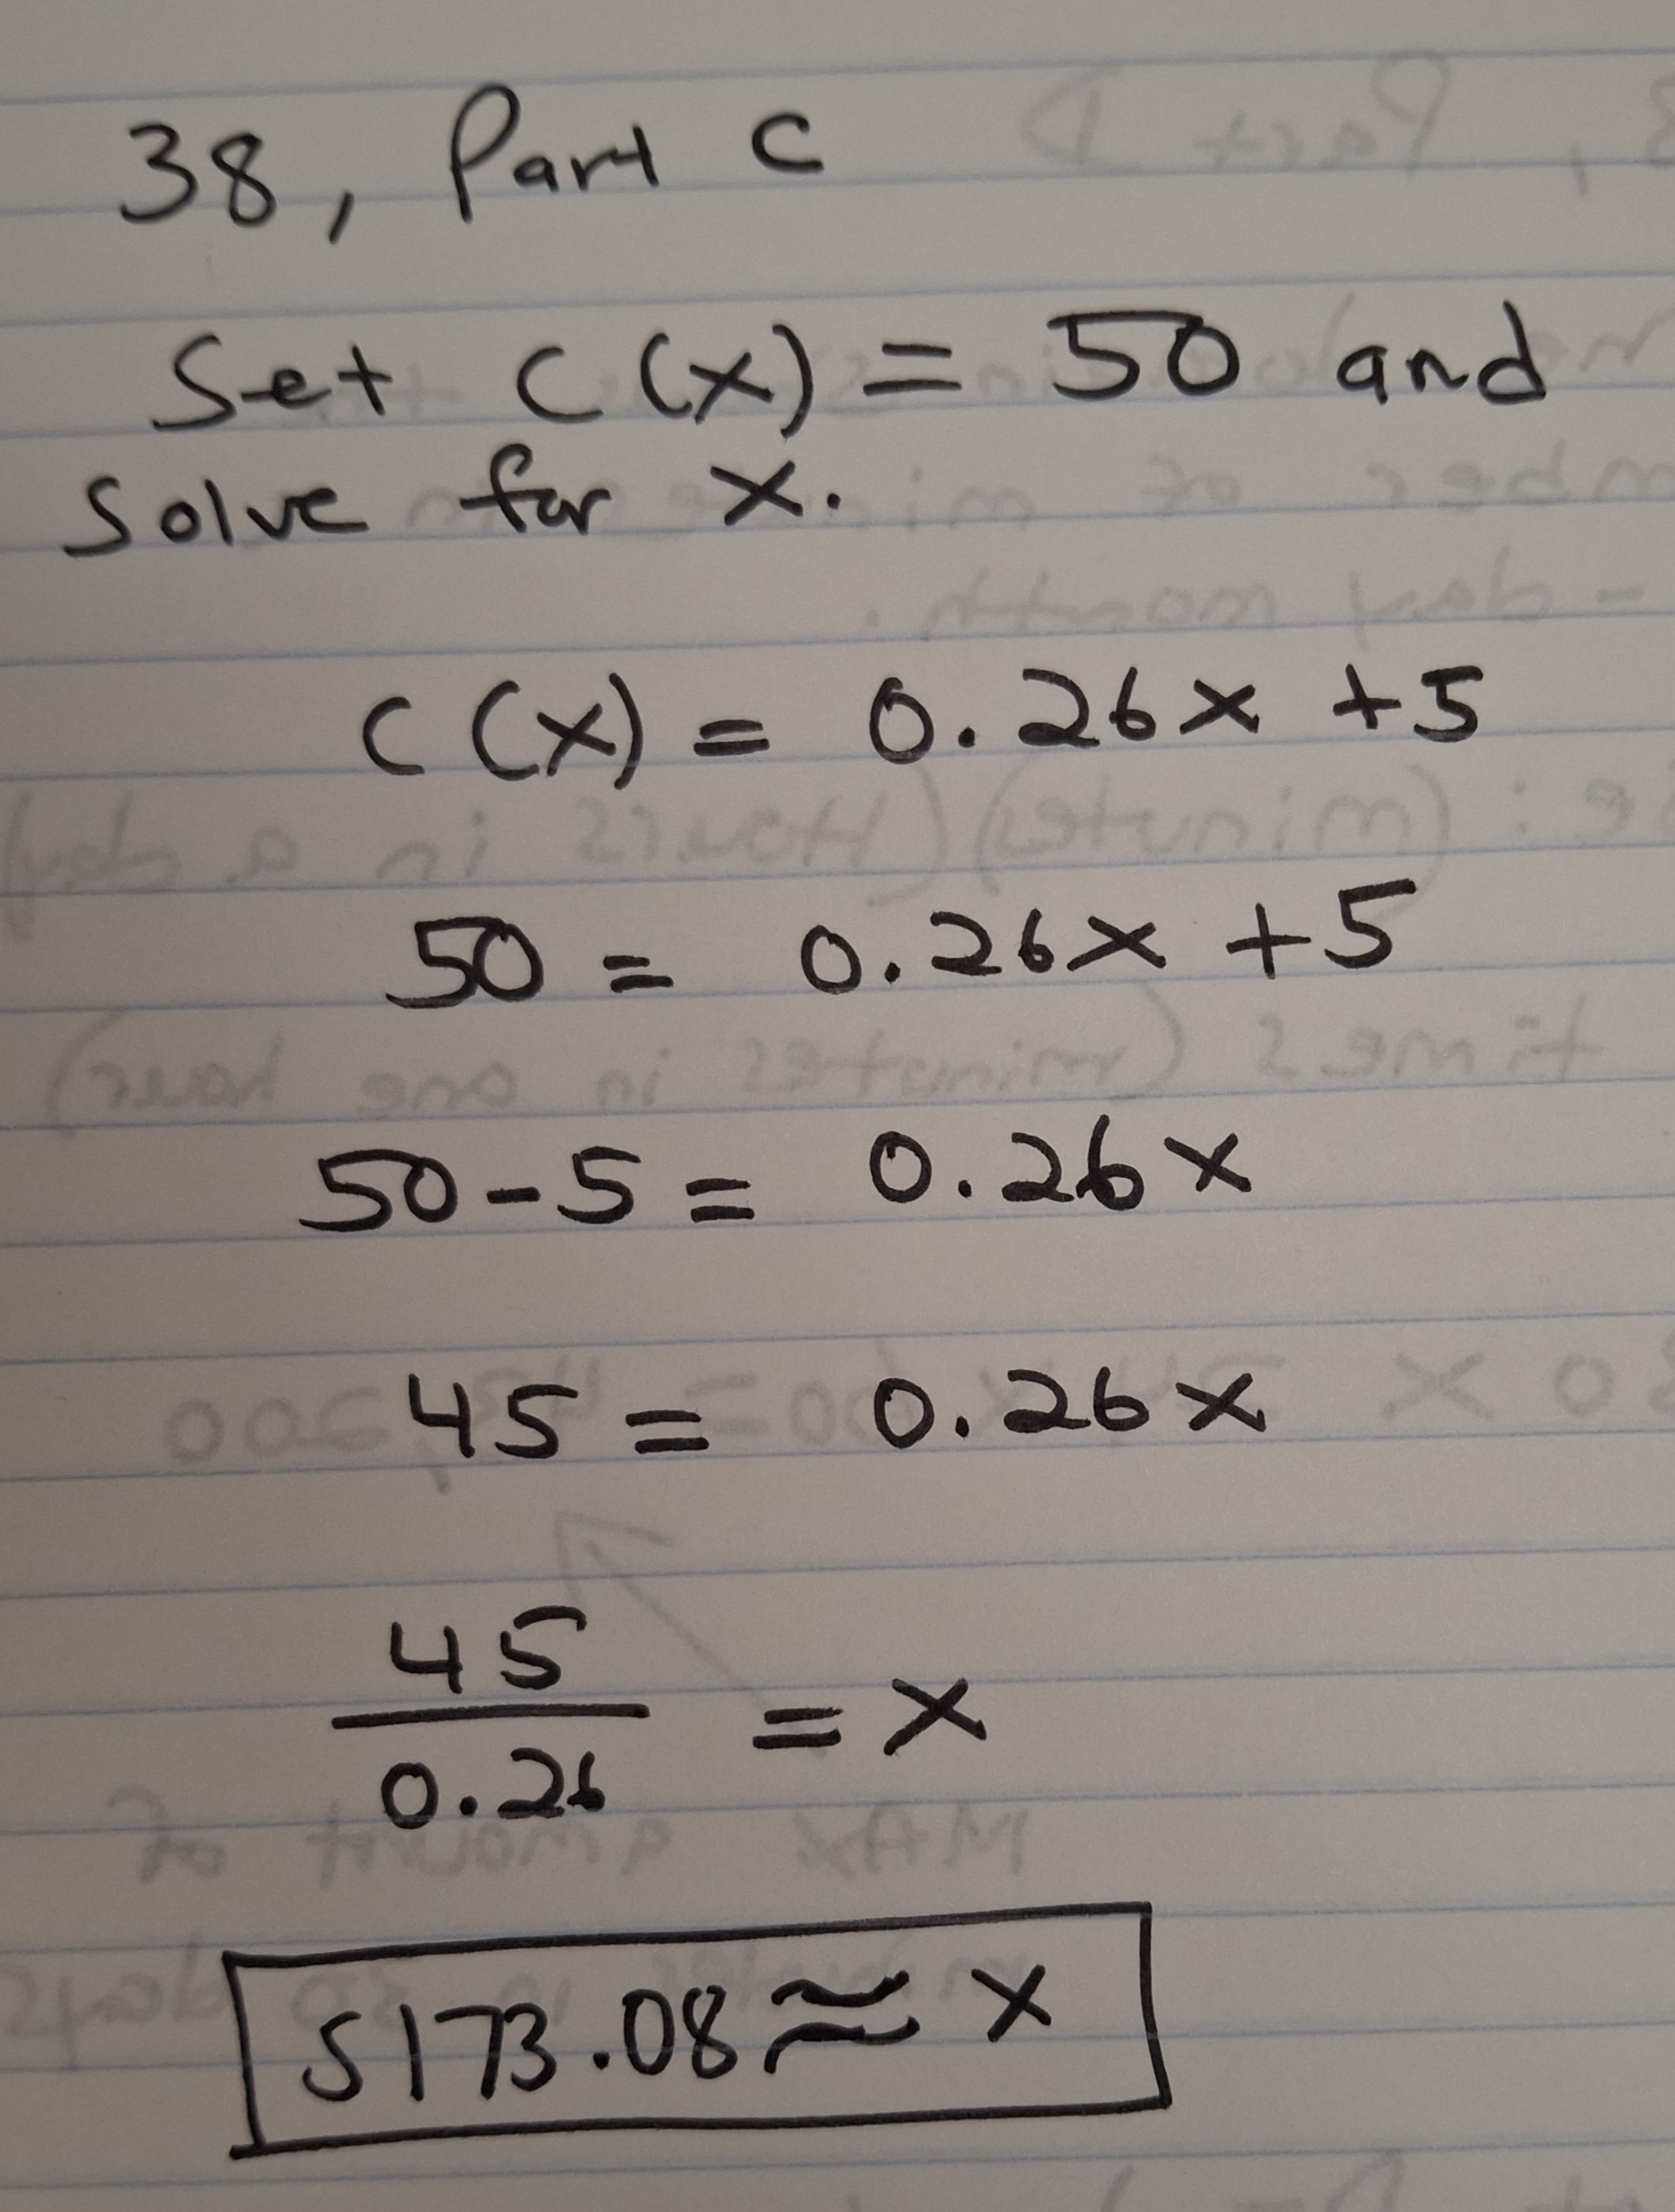 38, Part C
Set C(x) = 50 and
solve for x.
C(x) = 0.26x + 5
50 = 0.26x + 5
50 - 5 = 0.26x
45 = 0.26x
45
0.26 = x
S173.08 ≈ x